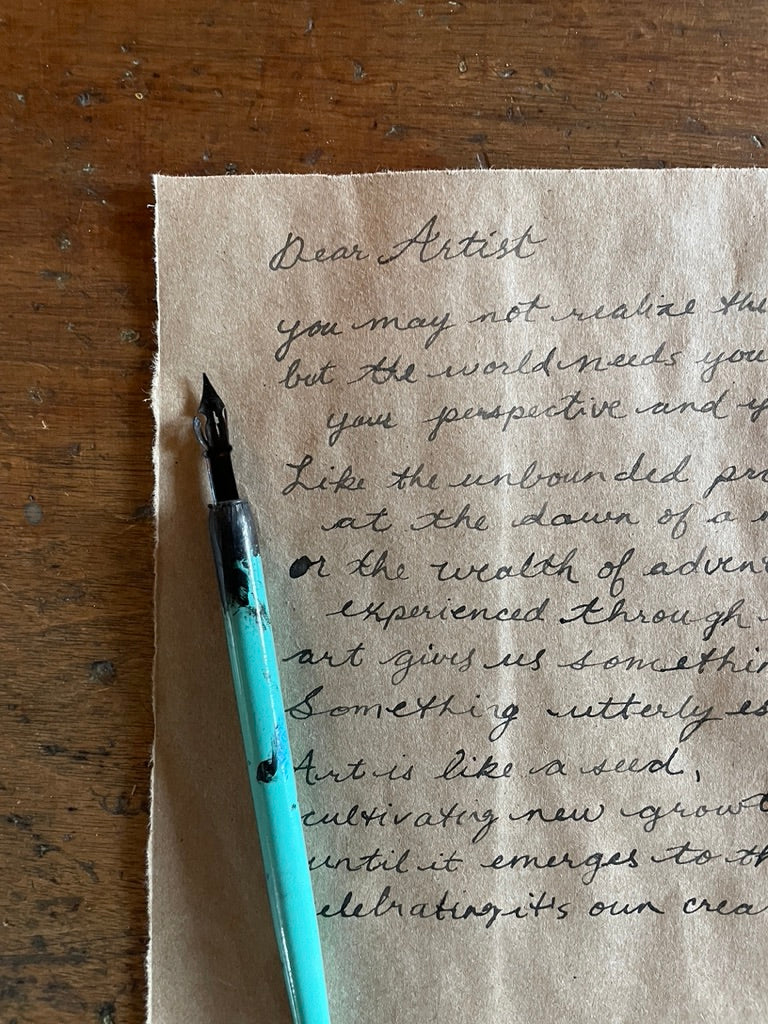 Dear Artist
you may not realize
but the world needs you
your perspective and
Like the unbounded
at the dawn of a
or the wealth of
experienced through
art gives us
Something utterly
Art is like a seed,
cultivating new
until it emerges to
it's own